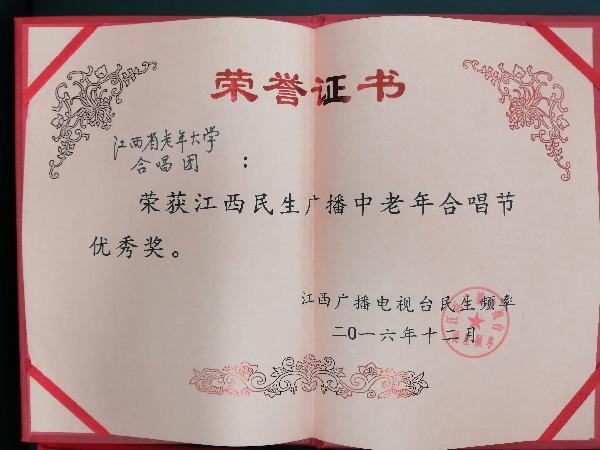 荣誉证书
江西省老年大学
合唱团：
荣获江西民生广播中老年合唱节
优秀奖。
江西广播电视台民生频率
二0一六年十二月